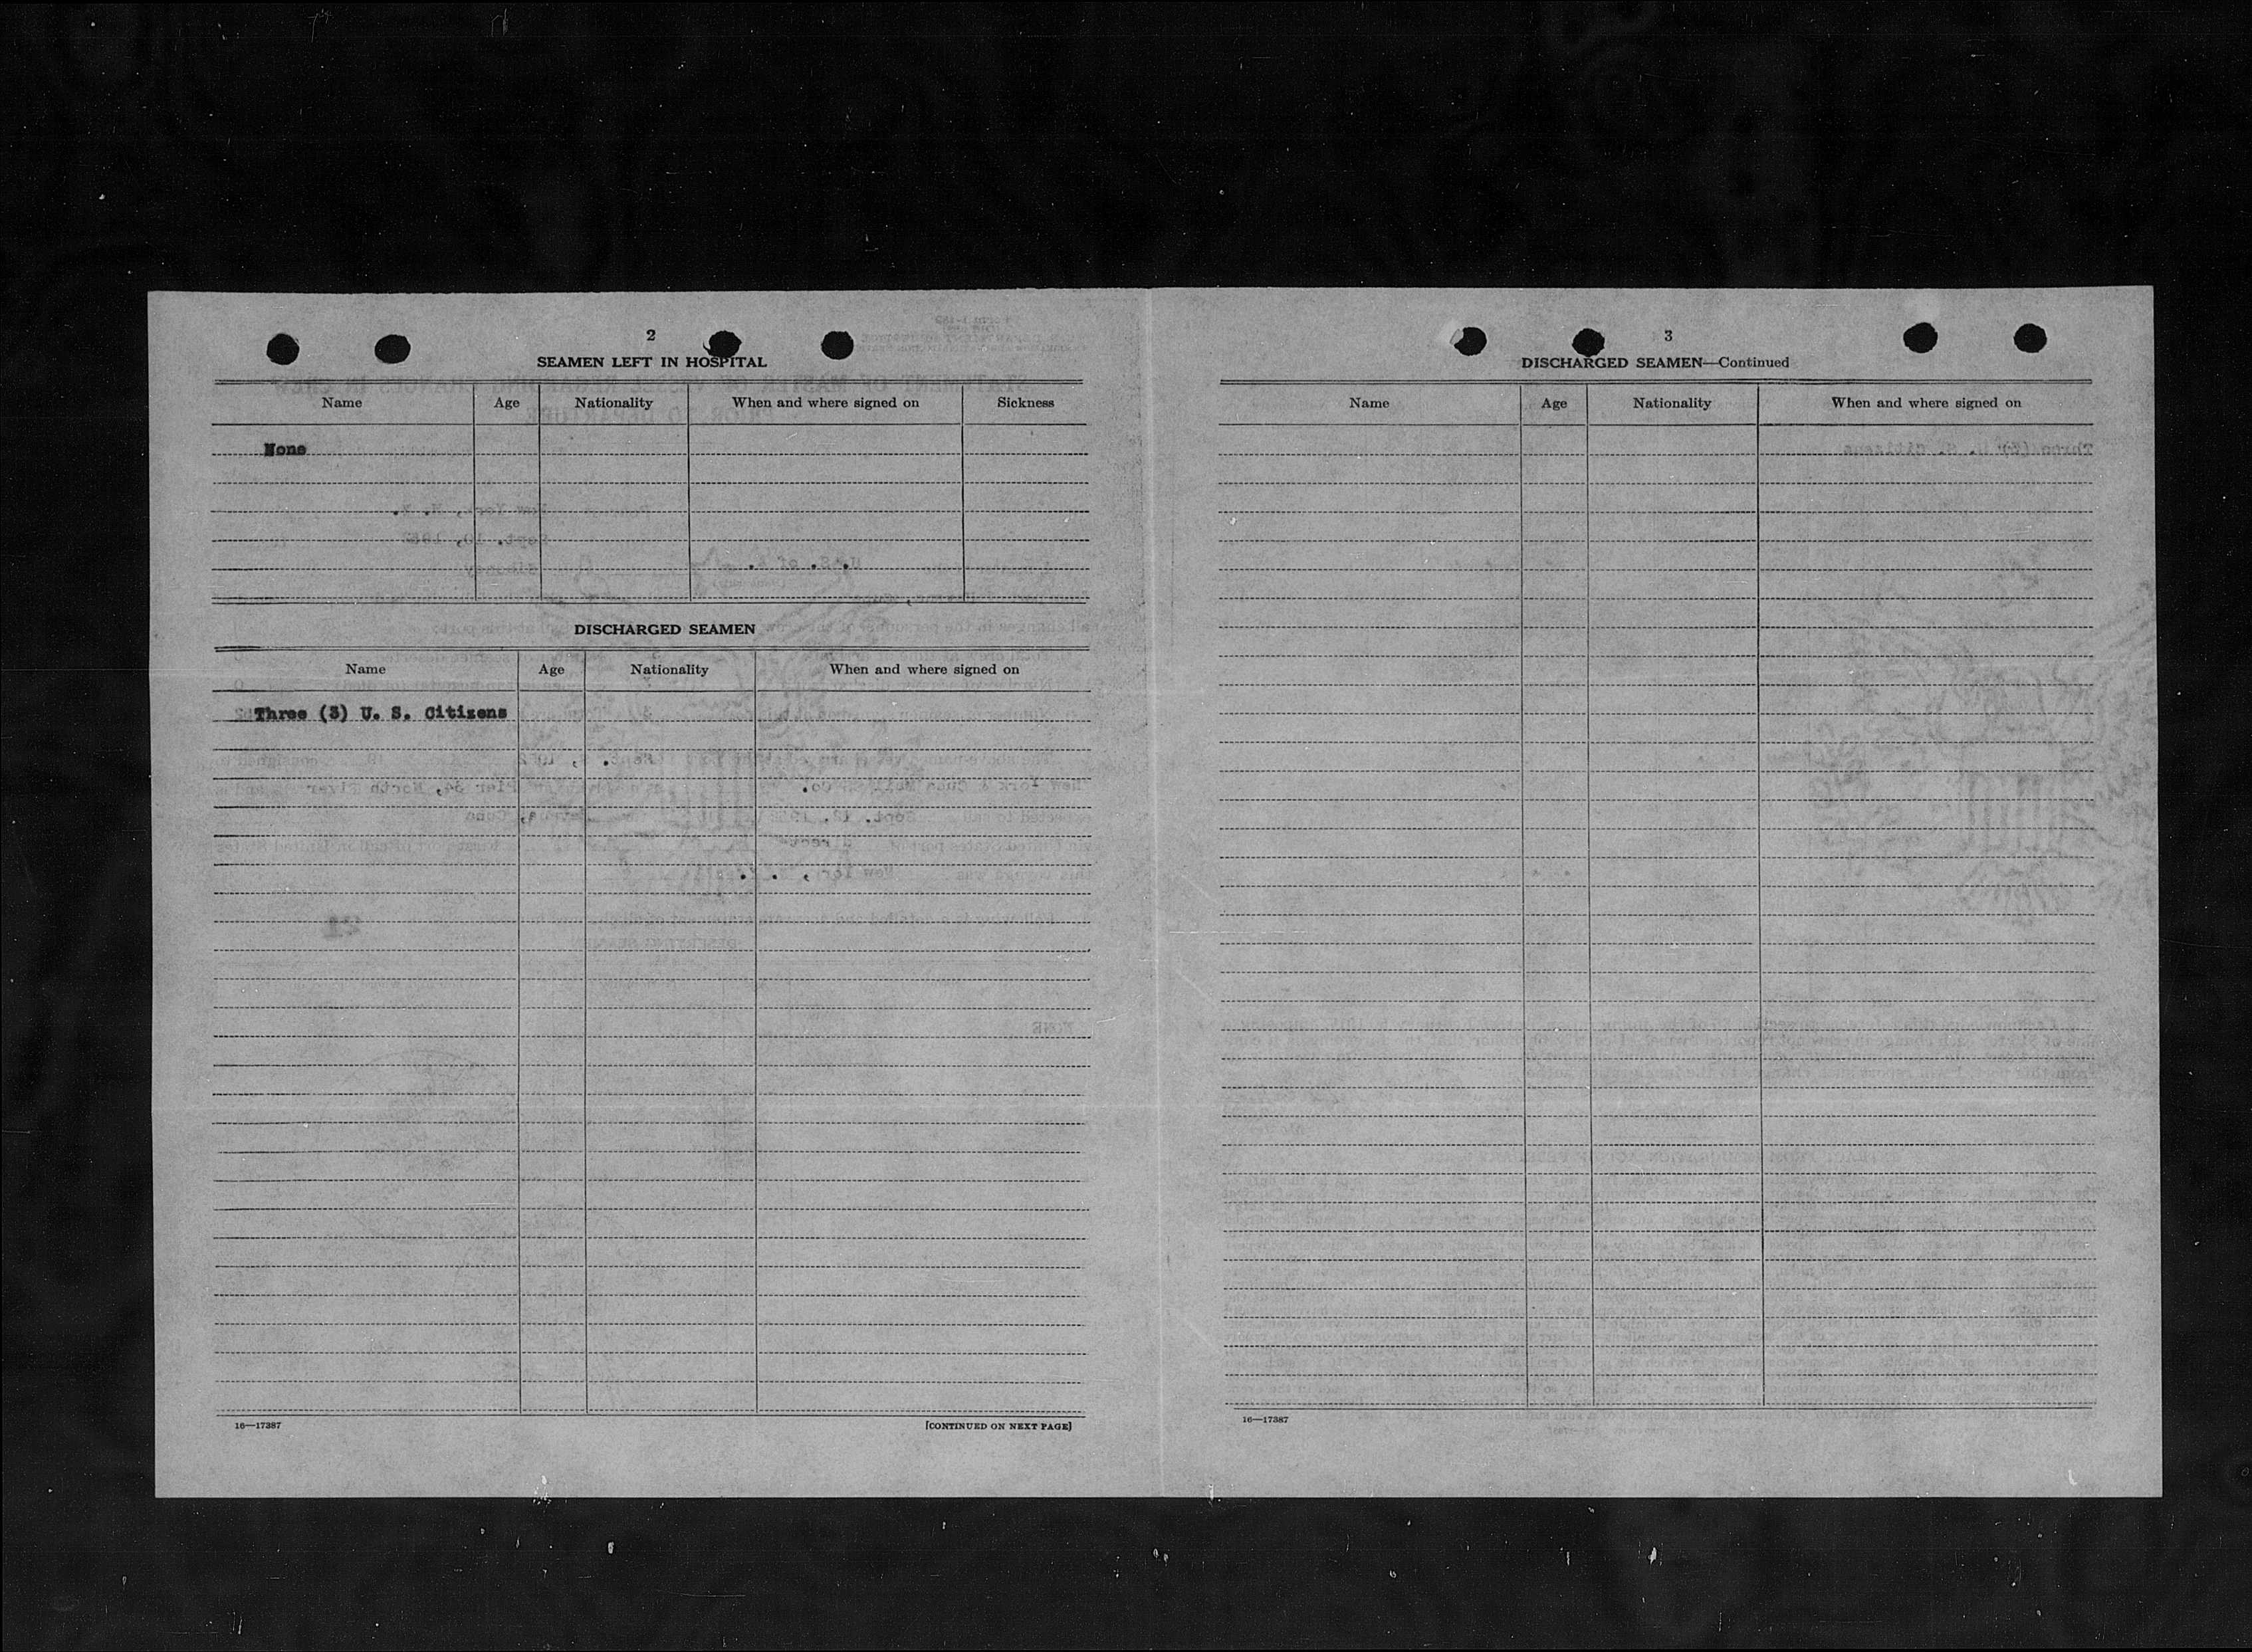 2
SEAMEN LEFT IN HOSPITAL
Name Age Nationality When and where signed on Sickness
None
DISCHARGED SEAMEN
Name Age Nationality When and where signed on
Three (3) U. S. Citizens
16—17387 [CONTINUED ON NEXT PAGE]
3
DISCHARGED SEAMEN—Continued
Name Age Nationality When and where signed on
16—17387